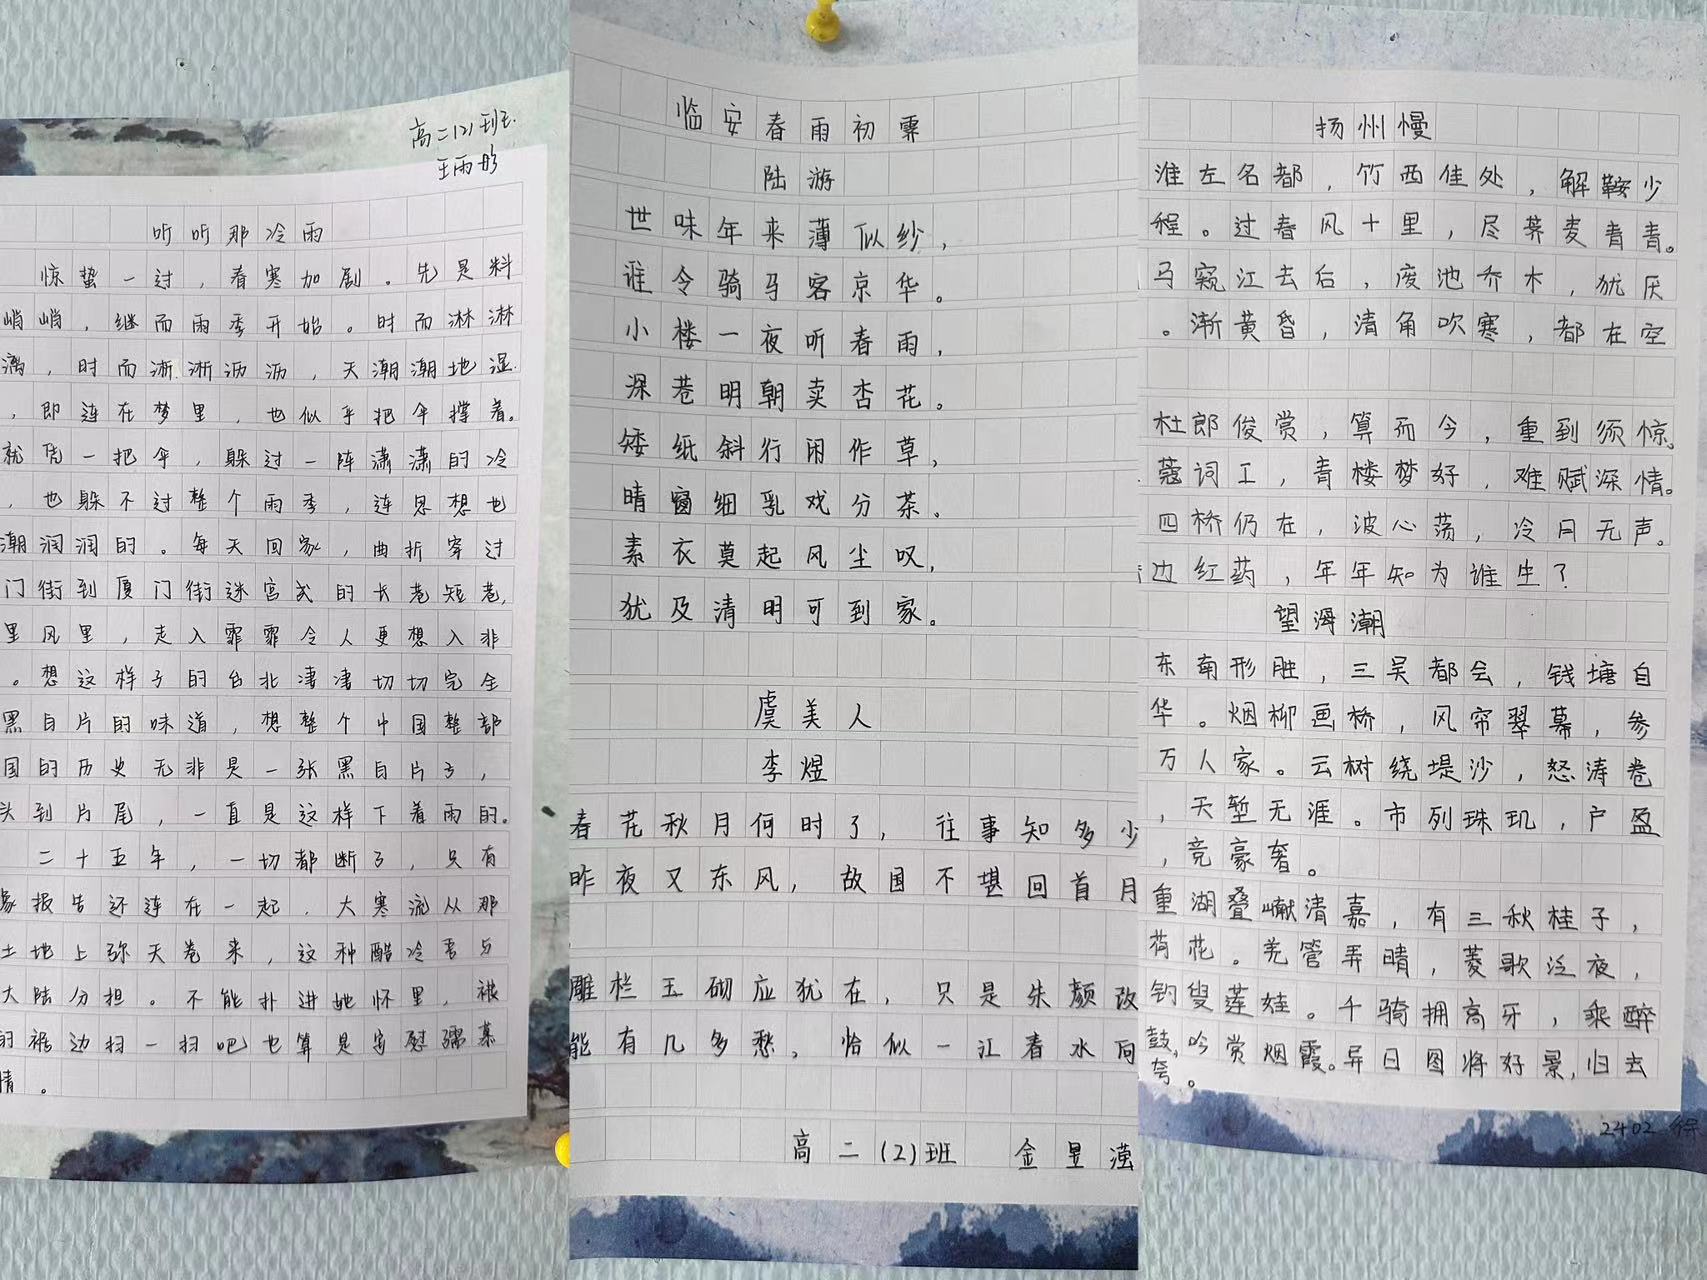 高二(2)班
王雨彤
听听那冷雨
惊蛰一过，春寒加剧。先是料
峭峭，继而雨季开始。时而淋淋
漓，时而淅淅沥沥，天潮潮地湿
，即连在梦里，也似乎把伞撑着。
就凭一把伞，躲过一阵潇潇的冷
，也躲不过整个雨季，连思想也
潮润润的。每天回家，曲折穿过
门街到厦门街迷宫式的长巷短巷，
里风里，走入霏霏令人更想入非
。想这样子的台北凄凄切切完全
黑白片的味道，想整个中国整部
国的历史无非是一张黑白片子，
头到片尾，一直是这样下着雨的。
二十五年，一切都断了，只有
象报告还连在一起，大寒流从那
土地上弥天卷来，这种酷冷吾与
大陆分担。不能扑进她怀里，被
的裾边扫一扫吧也算是安慰孺慕
情。
临安春雨初霁
陆游
世味年来薄似纱，
谁令骑马客京华。
小楼一夜听春雨，
深巷明朝卖杏花。
矮纸斜行闲作草，
晴窗细乳戏分茶。
素衣莫起风尘叹，
犹及清明可到家。
虞美人
李煜
春花秋月何时了，往事知多少
昨夜又东风，故国不堪回首月
雕栏玉砌应犹在，只是朱颜改
能有几多愁，恰似一江春水向
高二(2)班 金昱滢
扬州慢
淮左名都，竹西佳处，解鞍少
程。过春风十里，尽荠麦青青。
马窥江去后，废池乔木，犹厌
。渐黄昏，清角吹寒，都在空
杜郎俊赏，算而今，重到须惊。
蔻词工，青楼梦好，难赋深情。
四桥仍在，波心荡，冷月无声。
边红药，年年知为谁生？
望海潮
东南形胜，三吴都会，钱塘自
华。烟柳画桥，风帘翠幕，参
万人家。云树绕堤沙，怒涛卷
，天堑无涯。市列珠玑，户盈
，竞豪奢。
重湖叠巘清嘉，有三秋桂子，
荷花。羌管弄晴，菱歌泛夜，
钓叟莲娃。千骑拥高牙，乘醉
鼓，吟赏烟霞。异日图将好景，归去
夸。
2402